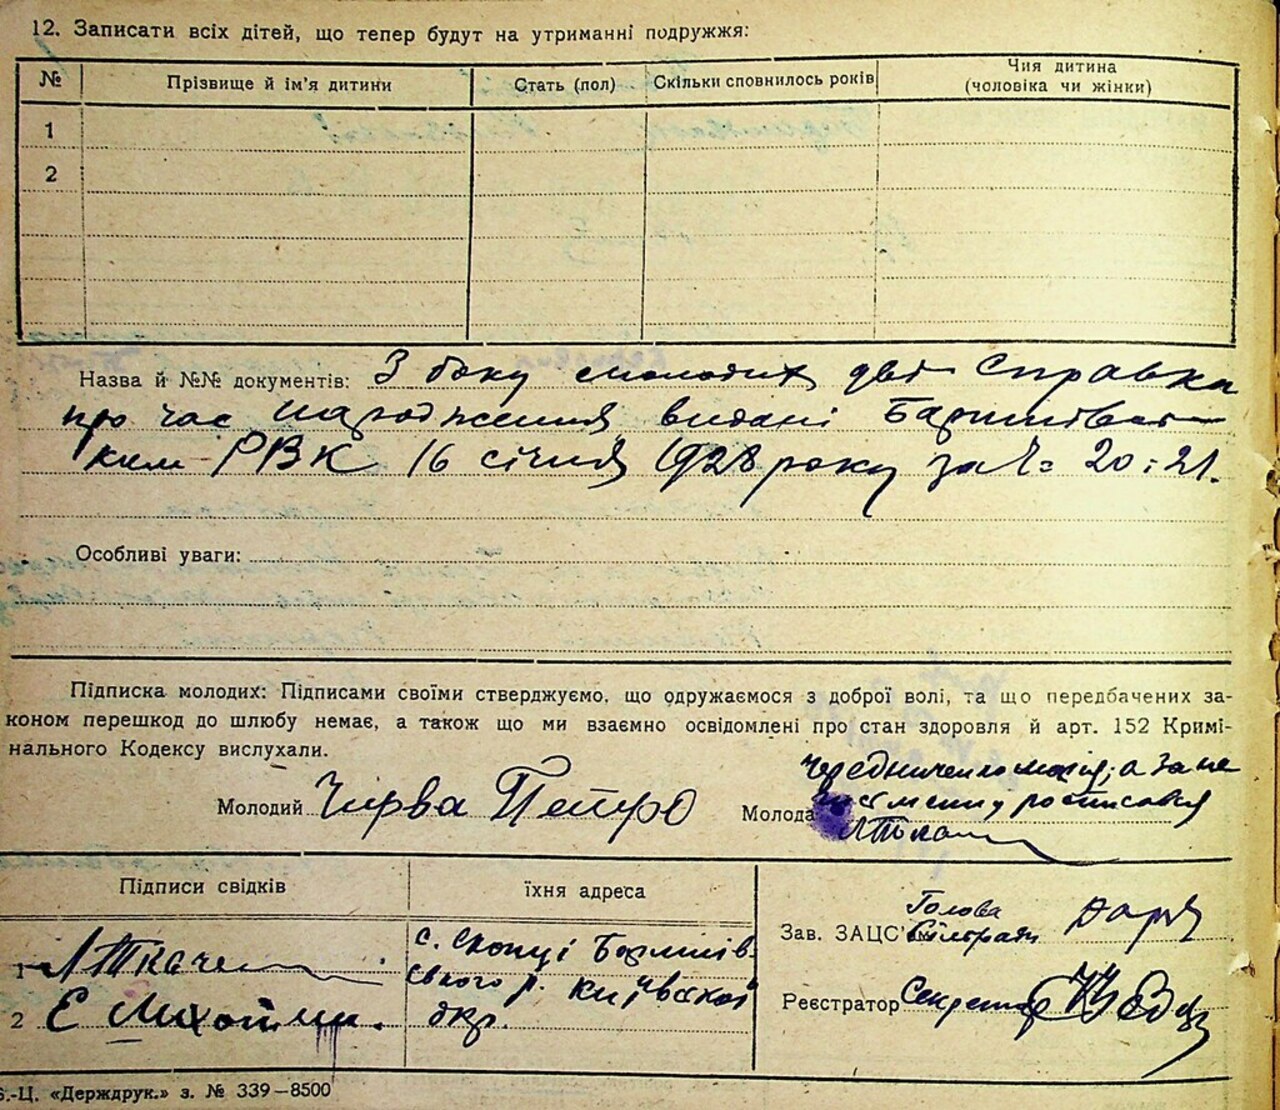 12. Записати всіх дітей, що тепер будут на утриманні подружжя:
№ Прізвище й ім'я дитини Стать (пол) Скільки сповнилось років Чия дитина
(чоловіка чи жінки)
1
2
Назва й №№ документів: З боку молодих дві справки
про час народження видані Баришівсь-
ким РВК 16 січня 1928 року за Ч: 20 і 21.
Особливі уваги:
Підписка молодих: Підписами своїми стверджуємо, що одружаємося з доброї волі, та що передбачених за-
коном перешкод до шлюбу немає, а також що ми взаємно освідомлені про стан здоровля й арт. 152 Кримі-
нального Кодексу вислухали.
Молодий Чирва Петро
Молода Чередниченко Марія, а за не
письменну росписався
Підписи свідків їхня адреса
1 Л Ткаче
2 Є
с. Скопці Баришів-
ського р. Київської
окр.
Зав. ЗАЦС'у Голова
Сільради
Реєстратор Секретар
Б.-Ц. «Держдрук.» з. № 339—8500